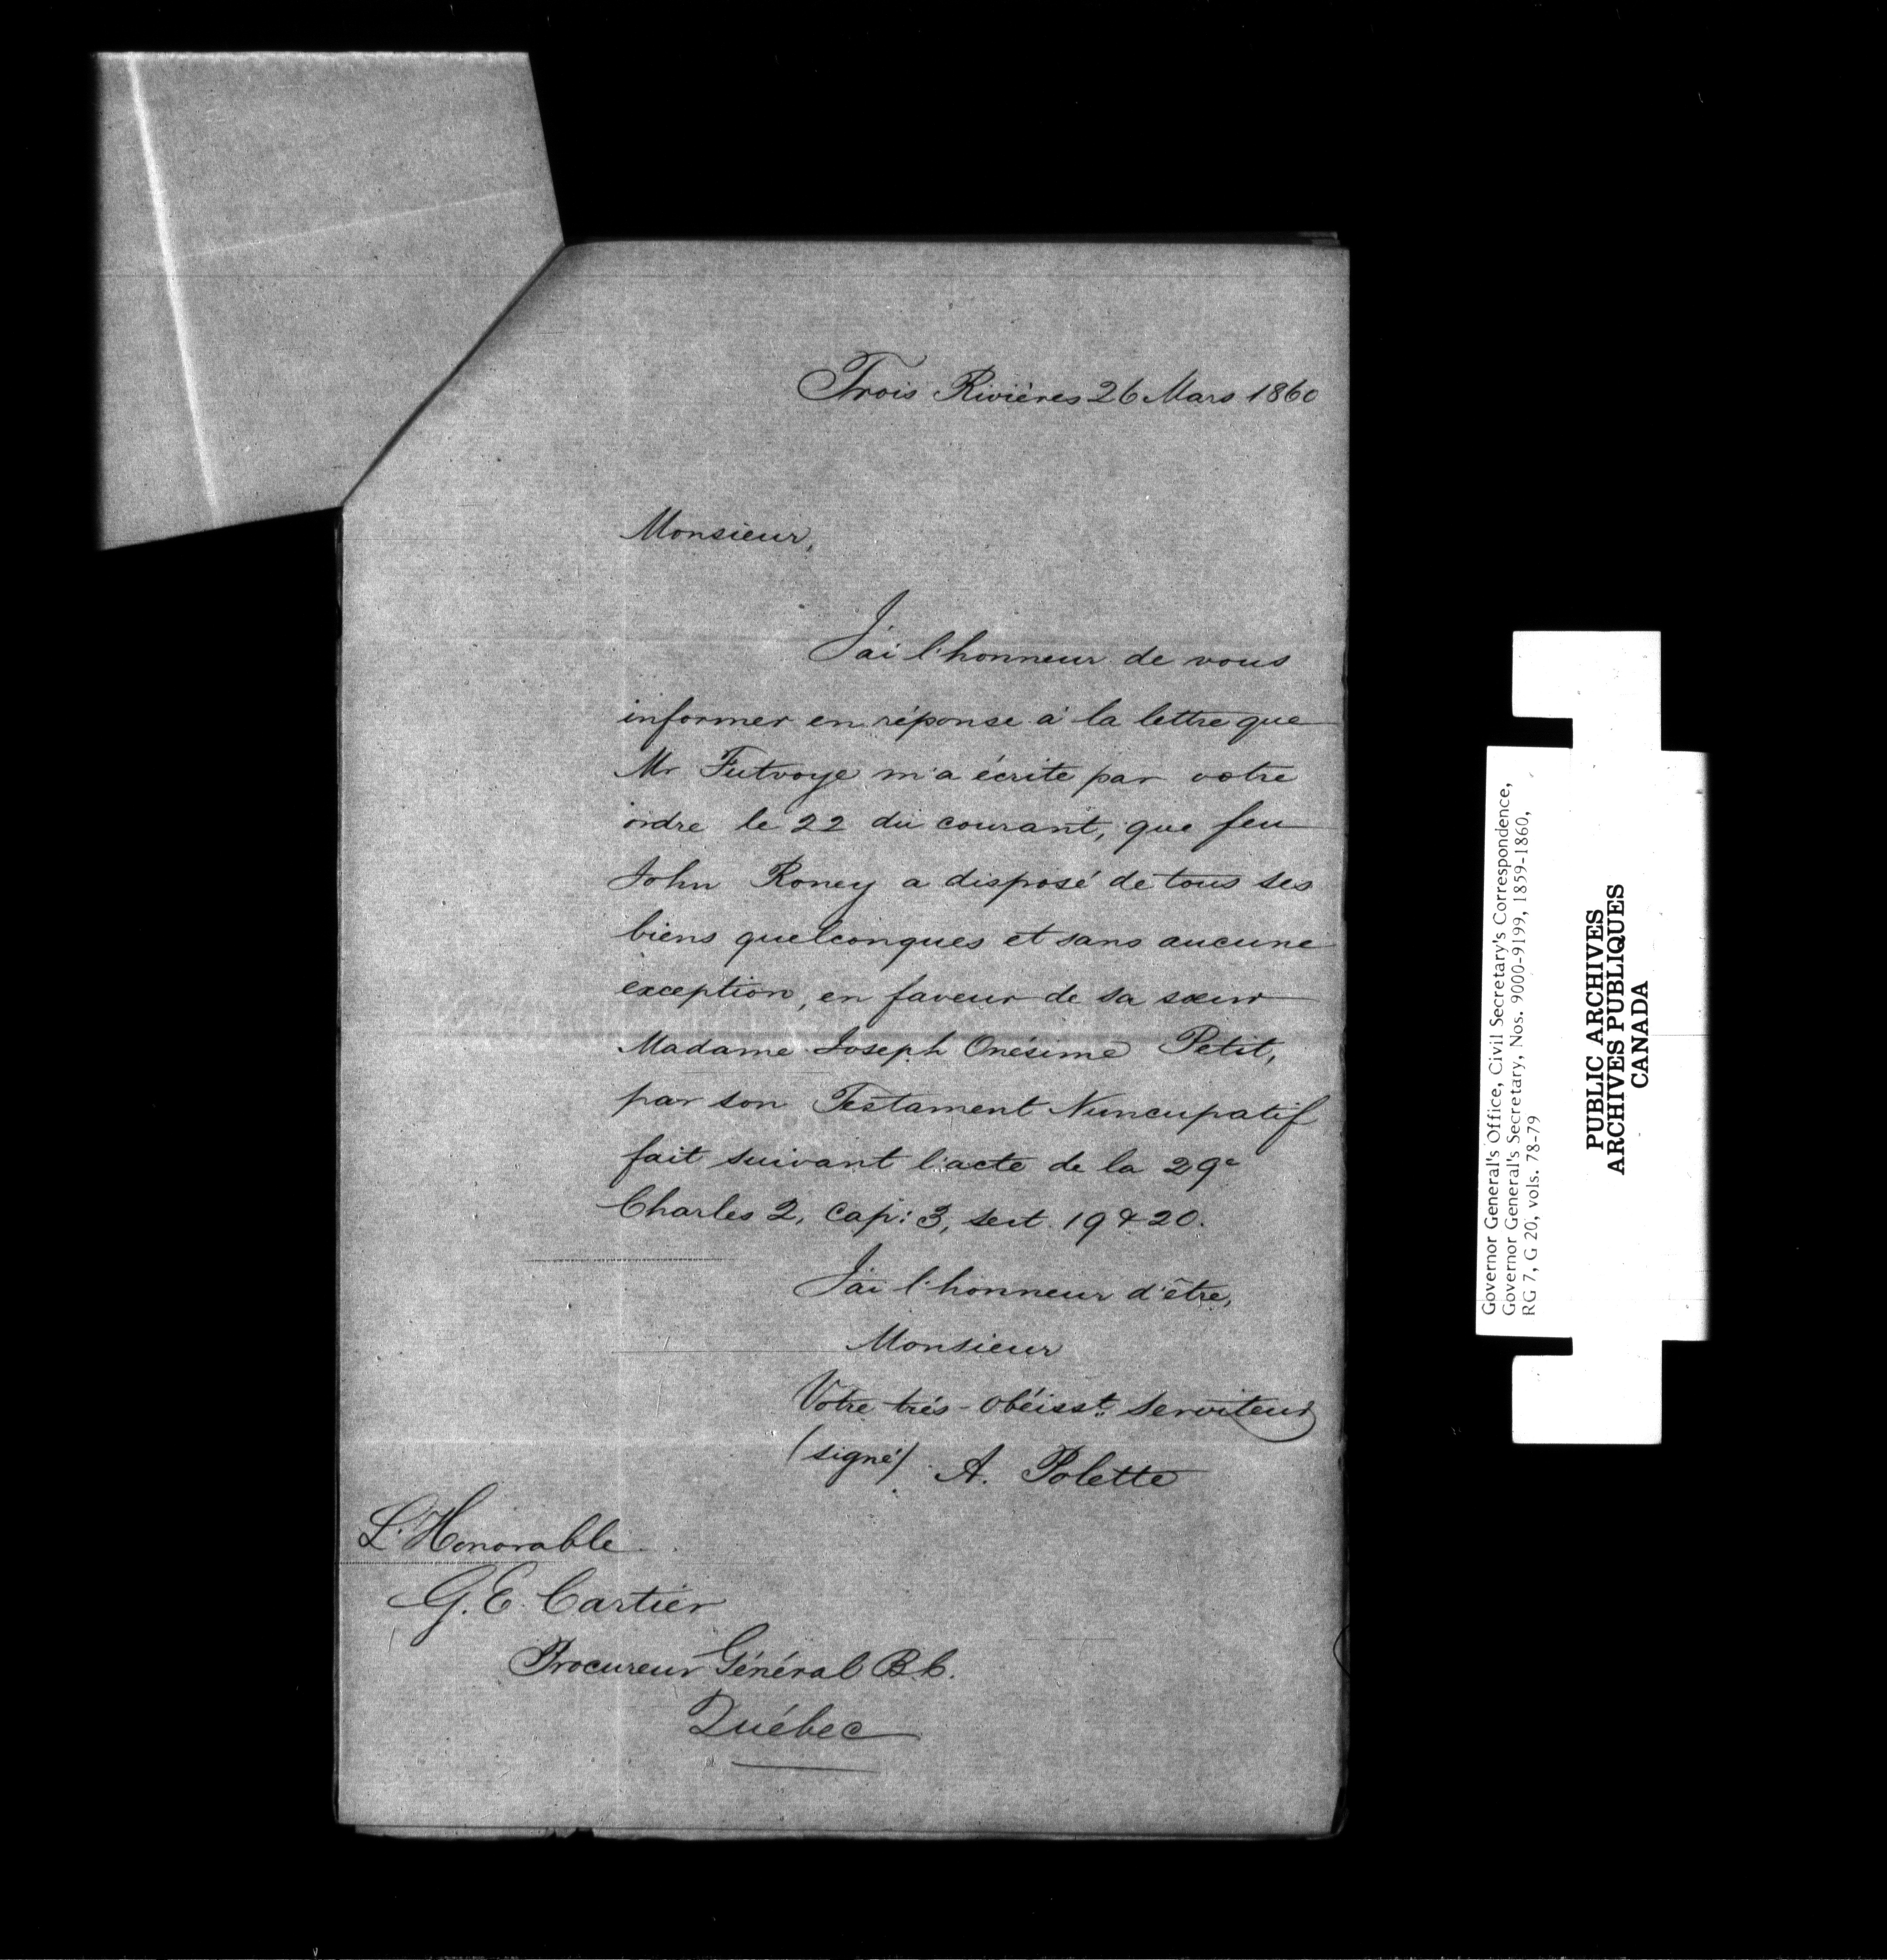 Trois Rivières 26 Mars 1860
Monsieur,
J'ai l'honneur de vous
informer en réponse à la lettre que
Mr Futvoye m'a écrite par votre
ordre le 22 du courant, que feu
John Roney a disposé de tous ses
biens quelconques et sans aucune
exception, en faveur de sa sœur
Madame Joseph Onésime Petit,
par son Testament Nuncupatif
fait suivant l'acte de la 29e
Charles 2, Cap: 3, sect. 19 & 20.
J'ai l'honneur d'être,
Monsieur
Votre très-obéisst. Serviteur
(signé) A. Polette
L'Honorable
G. E. Cartier
Procureur Général B.C.
Québec
Governor General's Office, Civil Secretary's Correspondence,
Governor General's Secretary, Nos. 9000-9199, 1859-1860,
RG 7, G 20, vols. 78-79
PUBLIC ARCHIVES
ARCHIVES PUBLIQUES
CANADA